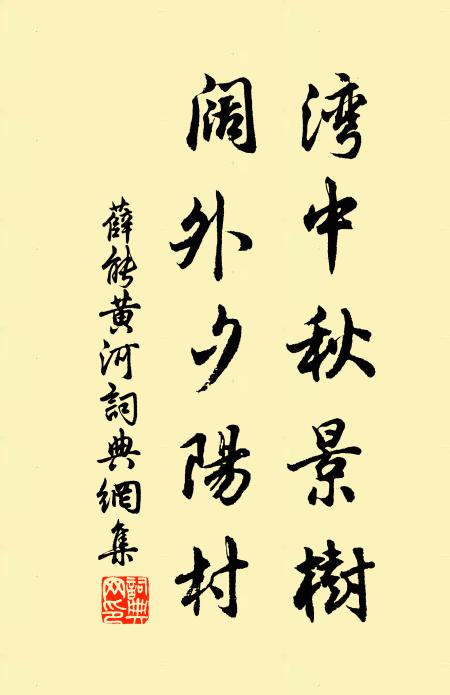 湾中秋景樹
阔外夕陽村
薛能黄河詞典網集
詞典網印